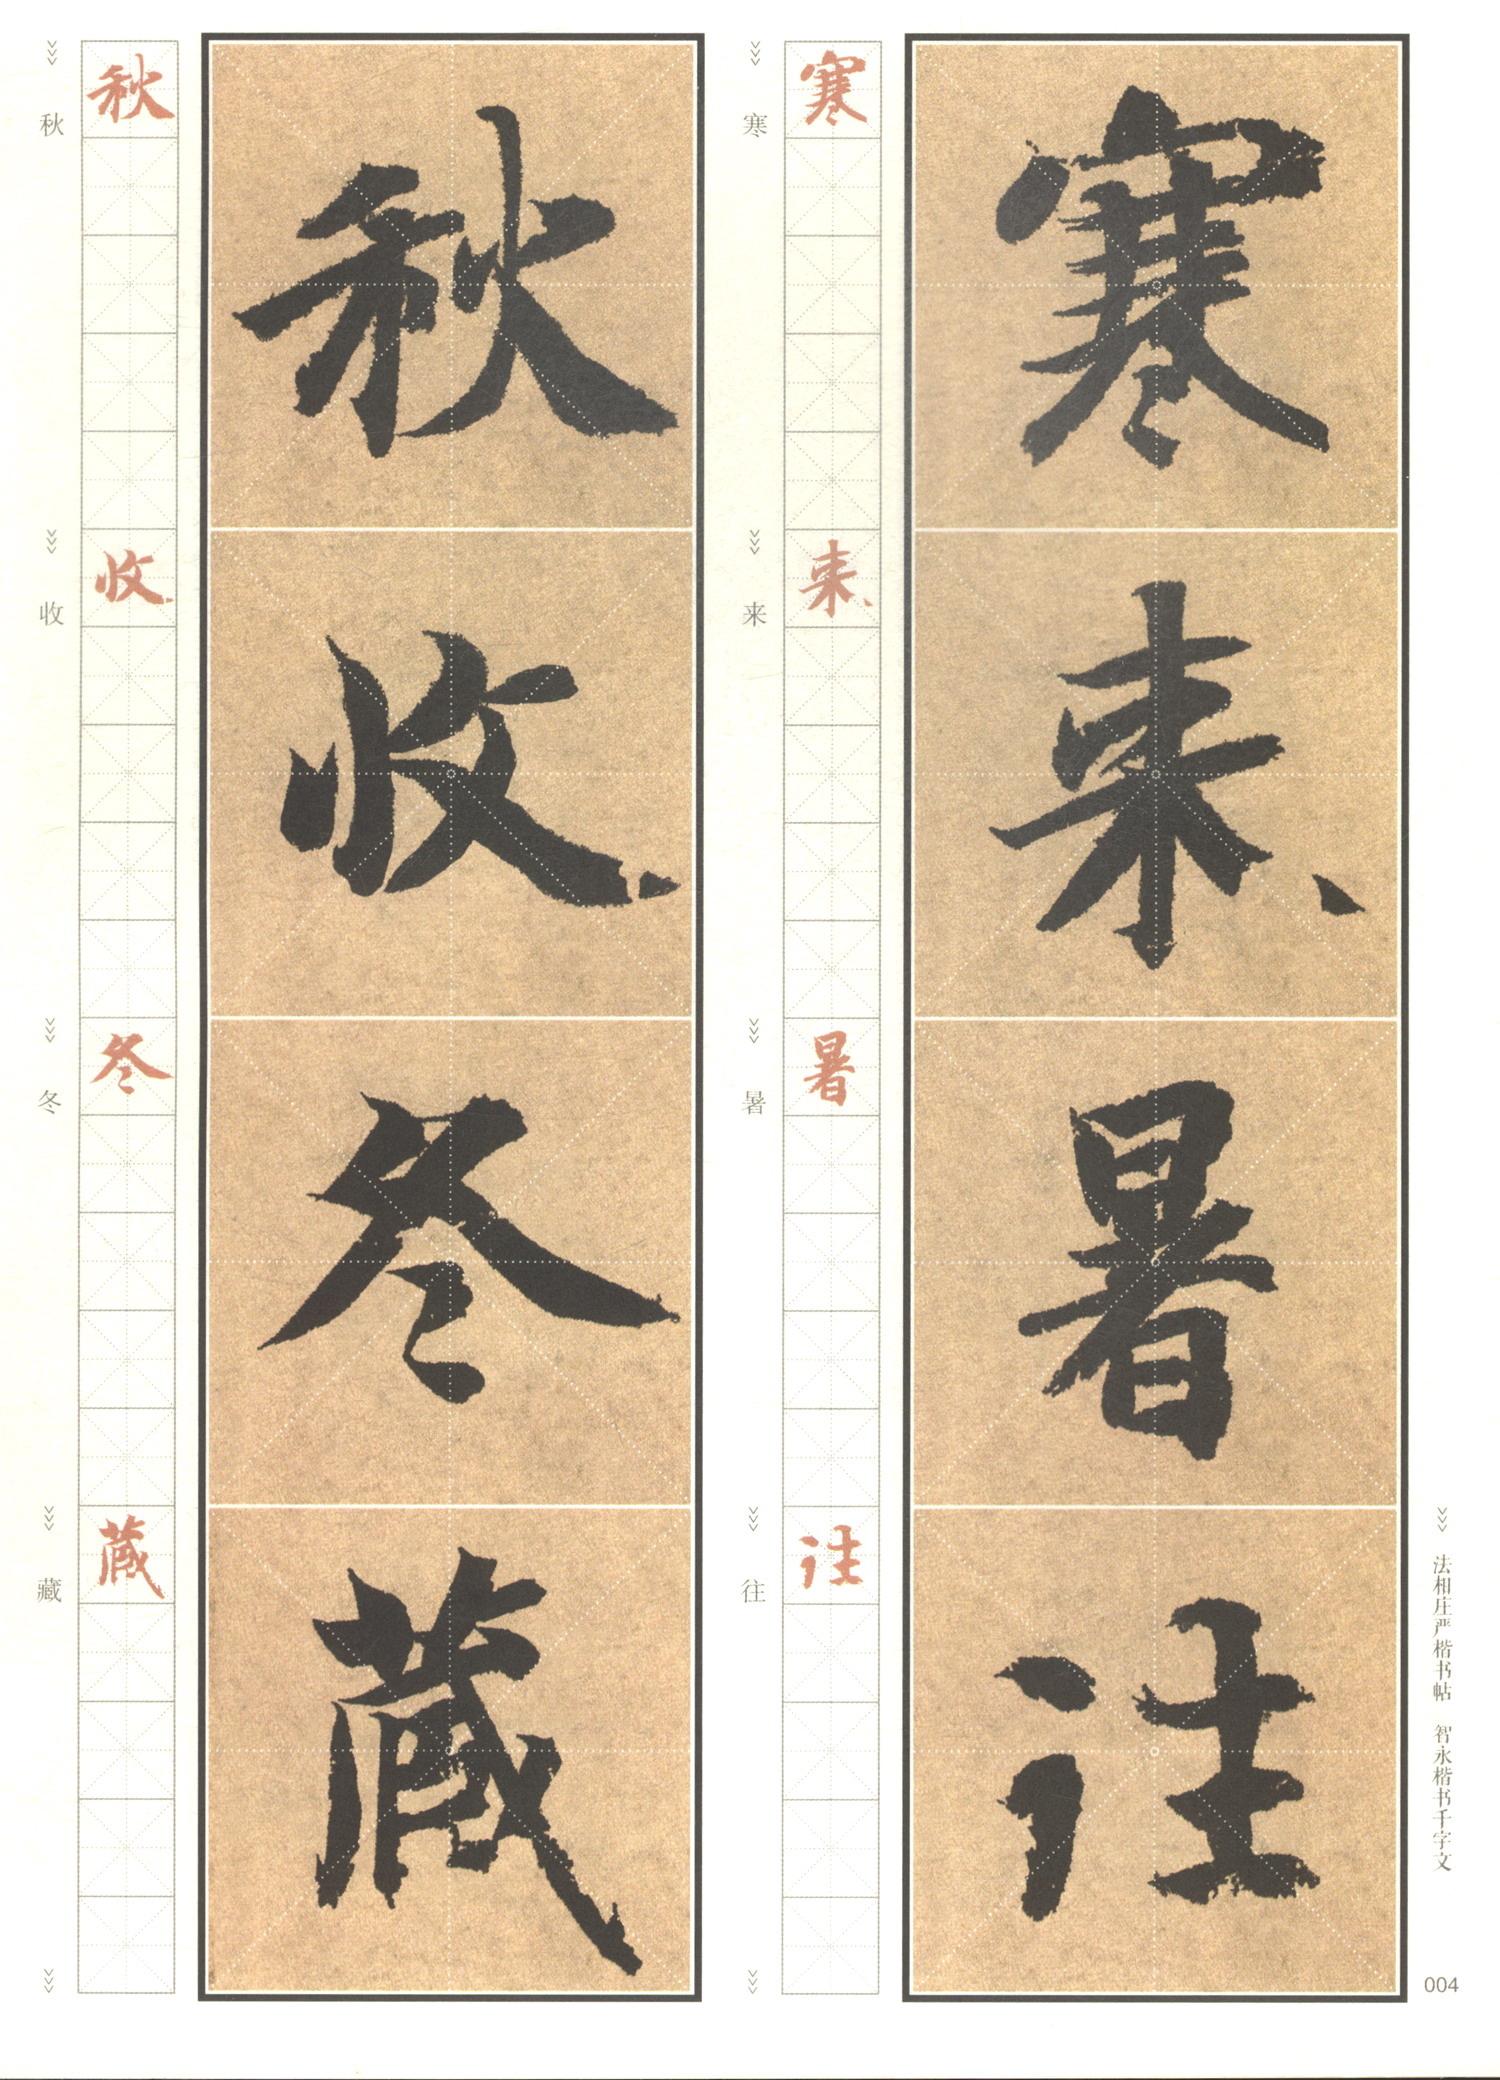 法相庄严楷书帖 智永楷书千字文
004
寒来暑往
寒
来
暑
往
寒来暑往
秋收冬藏
秋
收
冬
藏
秋收冬藏